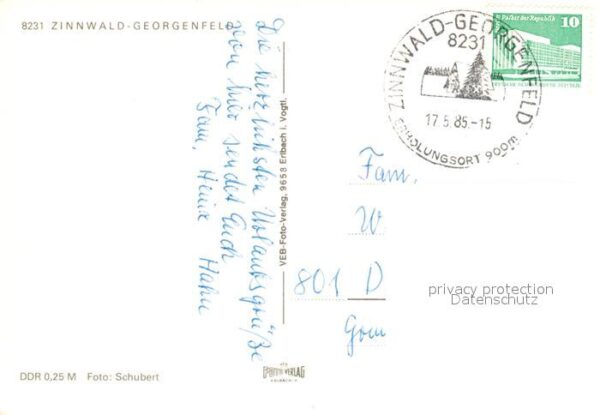 8231 ZINNWALD-GEORGENFELD
Die herzlichsten Urlaubsgrüße
von hier sendet Euch
Fam. Heinz Hahn
VEB-Foto-Verlag, 9653 Erlbach i. Vogtl.
Palast der Republik
10
ZINNWALD-GEORGENFELD
8231
17.5.85.-15
ERHOLUNGSORT 900m
Fam.
W
801 D
privacy protection
Datenschutz
DDR 0,25 M Foto: Schubert
VERLAG